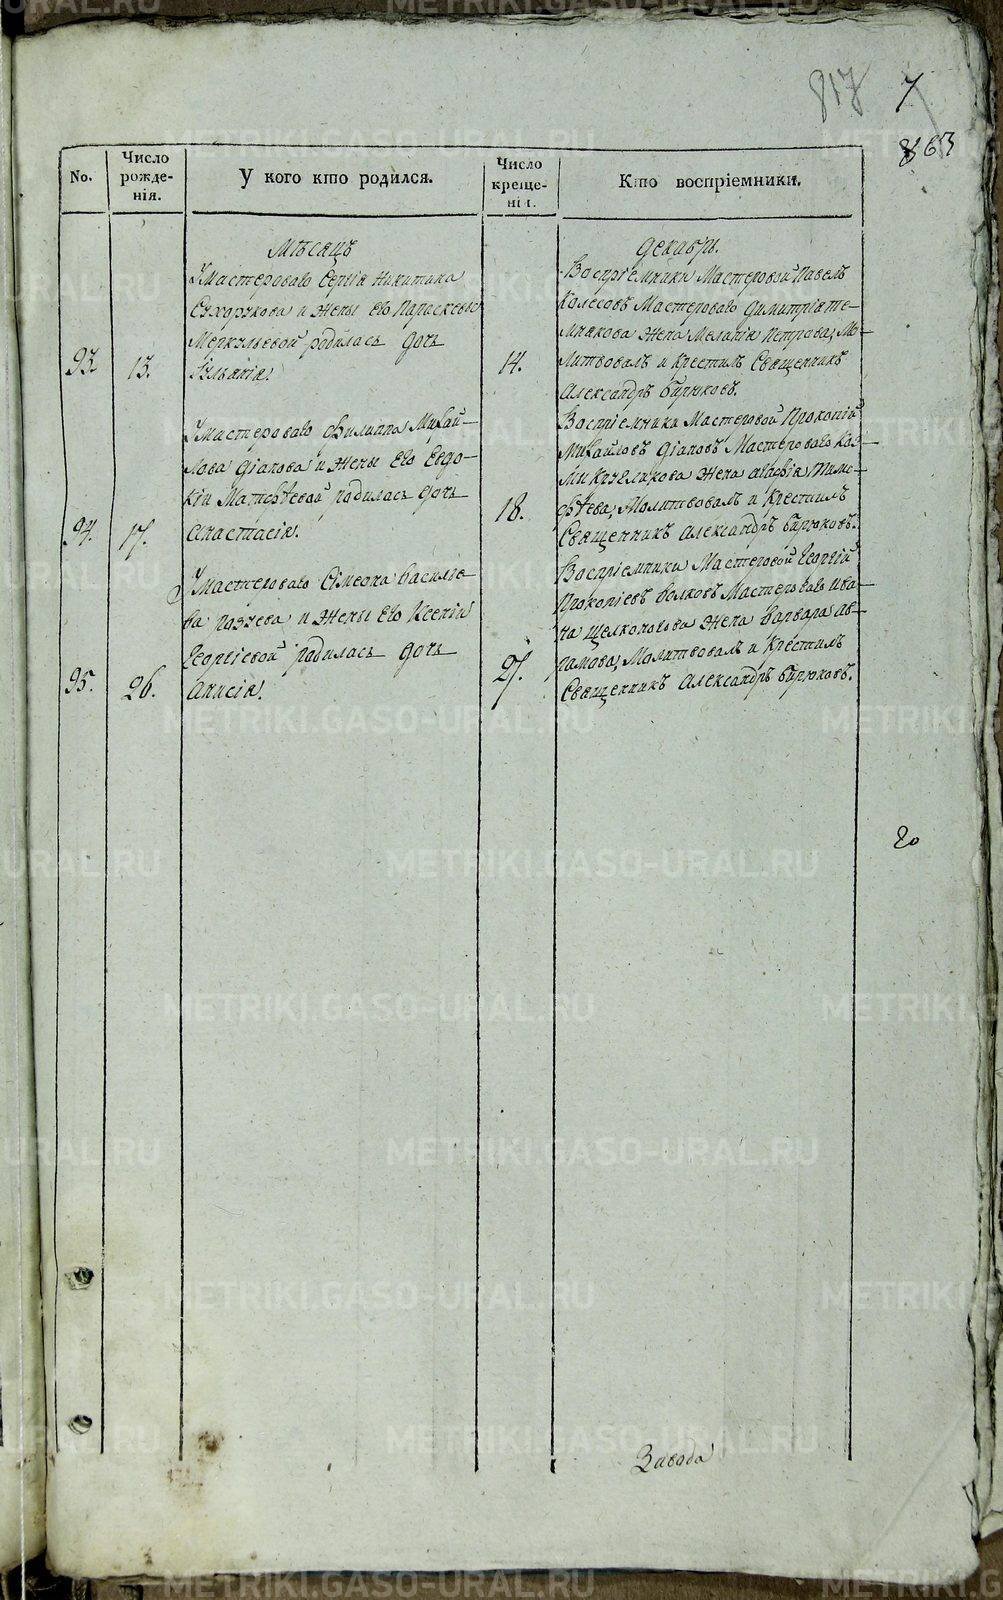 817
7
863
No.
Число рожде-нія.
У кого кто родился.
Число креще-нія.
Кто воспріемники.
Мѣсяцъ
Декабрь.
У мастероваго Сергія Никитина
Сухорукова и жены его Параскевы
Меркульевой родилась дочь
93. 13. Іуліанія.
14.
Воспріемники Мастеровой Павелъ
Колесовъ Мастероваго Димитрія
жена Меланія Петрова, Мо-
литвовалъ и крестилъ Священникъ
Александръ Бирюковъ.
У мастероваго Филиппа Михай-
лова Агапова и жены его Евдо-
кіи Матвѣевой родилась дочь
94. 17. Анастасія.
18.
Воспріемники Мастеровой Прокопій
Михайловъ Агаповъ Мастероваго
жена Агафія Тимо-
фѣева, Молитвовалъ и крестилъ
Священникъ Александръ Бирюковъ.
У мастероваго Сімеона Василіе-
ва и жены его Ксеніи
Георгіевой родилась дочь
95. 26. Анисія.
27.
Воспріемники Мастеровой Георгій
Прокопіевъ Волковъ Мастероваго Ива-
на Щелконогова жена Варвара Ав-
рамова, Молитвовалъ и крестилъ
Священникъ Александръ Бирюковъ.
80
Завода
METRIKI.GASO-URAL.RU